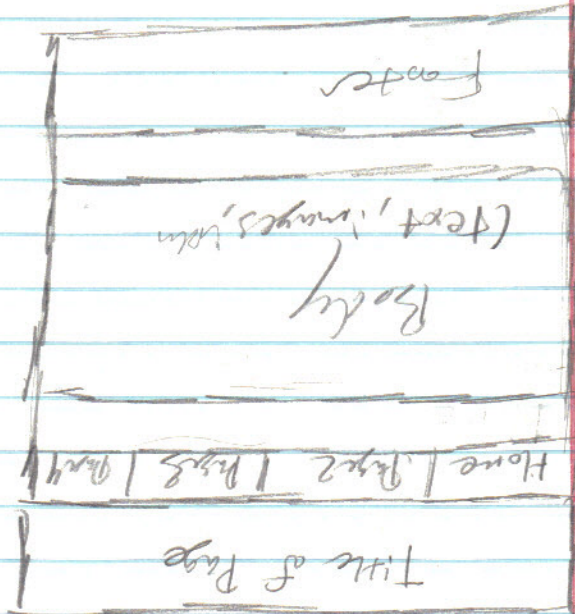 Title of Page
Home | Page 2 | Page 3 | Page 4
Body
(text, images,
Footer